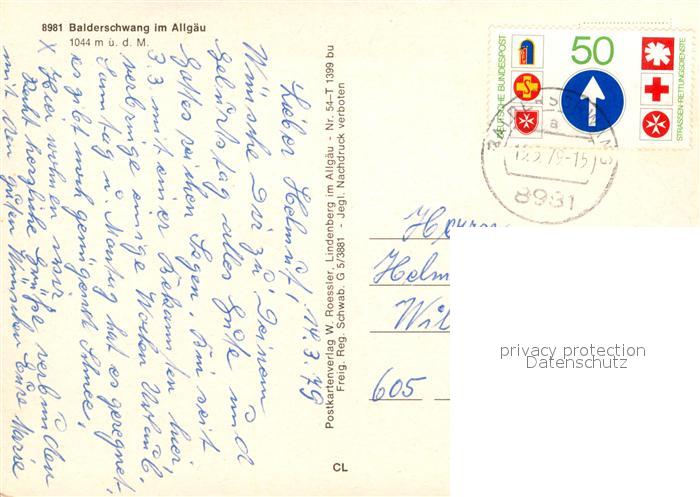 8981 Balderschwang im Allgäu
1044 m ü. d. M.
Lieber Helmut, 14.3.79
Wünsche Dir zu Deinem
Geburtstag alles Gute und
Gottes reichen Segen. Bin seit
3.3. mit einer Bekannten hier,
verbringe einige Wochen Urlaub.
Samstag u. Montag hat es geregnet,
es gibt noch genügend Schnee,
X Hier wohnen wir.
Recht herzliche Grüße verbunden
mit den guten Wünschen Eure Maria
Postkartenverlag W. Roessler, Lindenberg im Allgäu - Nr. 54-T 1399 bu
Freig. Reg. Schwab. G 5/3881 - Jegl. Nachdruck verboten
CL
DEUTSCHE BUNDESPOST
50
STRASSEN-RETTUNGSDIENSTE
BALDERSCHWANG
a
79-15
8981
Helm
605
privacy protection
Datenschutz